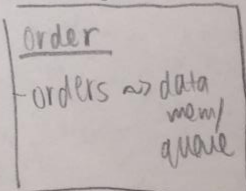 order
- orders ~> data
mem/
quaue